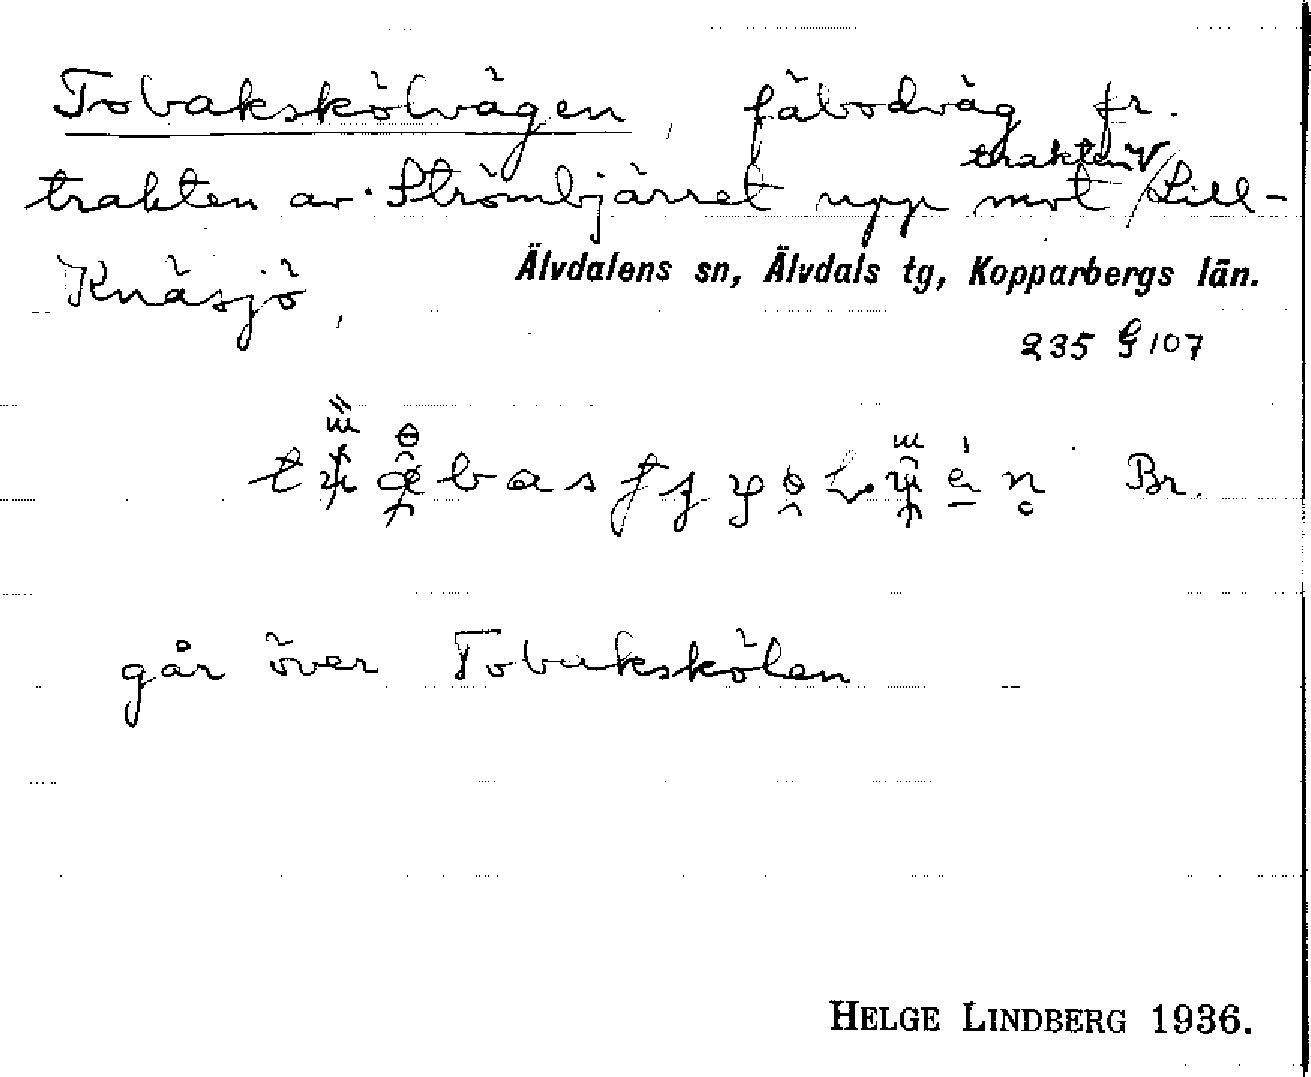 Tobakskölvägen, fäbodväg fr.
trakten av Strömbjärret upp mot trakten V Lill-
Knäsjö,
Älvdalens sn, Älvdals tg, Kopparbergs län.
235 G 107
Br.
går över Tobakskölen
HELGE LINDBERG 1936.